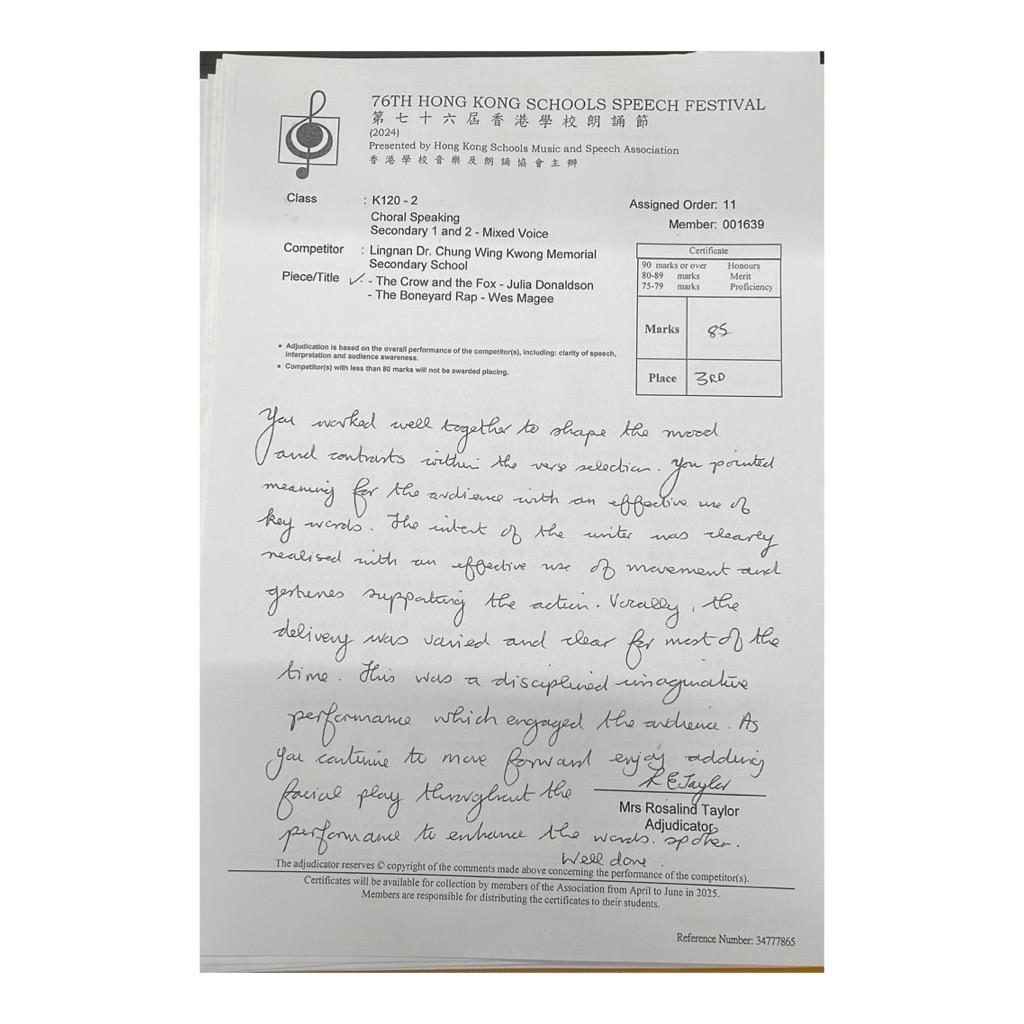 76TH HONG KONG SCHOOLS SPEECH FESTIVAL
第七十六屆香港學校朗誦節
(2024)
Presented by Hong Kong Schools Music and Speech Association
香港學校音樂及朗誦協會主辦
Class : K120 - 2
Choral Speaking
Secondary 1 and 2 - Mixed Voice
Assigned Order: 11
Member: 001639
Competitor : Lingnan Dr. Chung Wing Kwong Memorial
Secondary School
Piece/Title : ✓ - The Crow and the Fox - Julia Donaldson
- The Boneyard Rap - Wes Magee
Certificate
90 marks or over Honours
80-89 marks Merit
75-79 marks Proficiency
Marks 85
Place 3RD
• Adjudication is based on the overall performance of the competitor(s), including: clarity of speech,
interpretation and audience awareness.
• Competitor(s) with less than 80 marks will not be awarded placing.
You worked well together to shape the mood
and contrasts within the verse selection. You pointed
meaning for the audience with an effective use of
key words. The intent of the writer was clearly
realised with an effective use of movement and
gestures supporting the action. Vocally, the
delivery was varied and clear for most of the
time. This was a disciplined imaginative
performance which engaged the audience. As
you continue to move forward enjoy adding
facial play throughout the
performance to enhance the words spoken.
Well done.
R E Taylor
Mrs Rosalind Taylor
Adjudicator
The adjudicator reserves © copyright of the comments made above concerning the performance of the competitor(s).
Certificates will be available for collection by members of the Association from April to June in 2025.
Members are responsible for distributing the certificates to their students.
Reference Number: 34777865